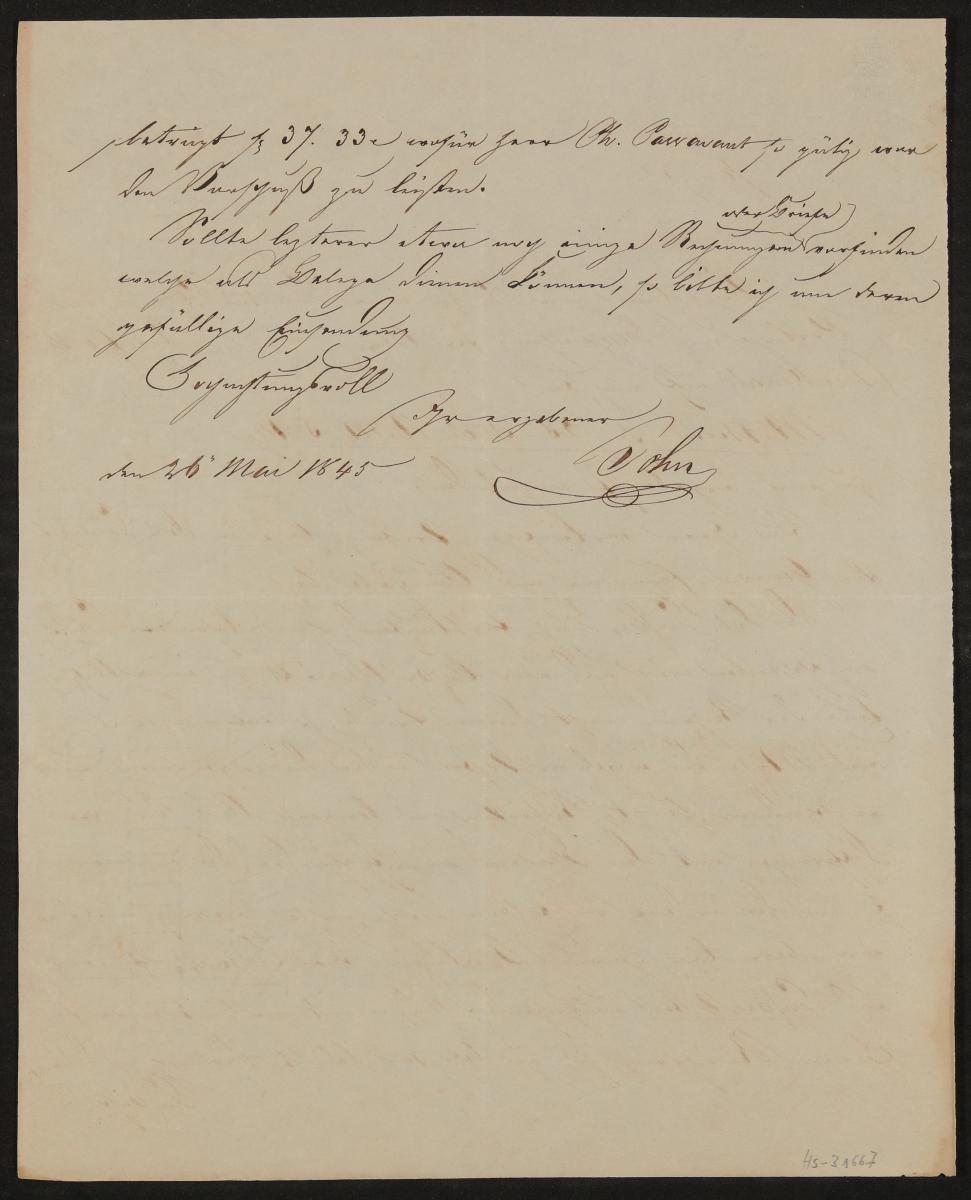 beträgt fs 37. 33c wofür Herr Ph. Passavant so gütig war
den Vorschuß zu leisten.
oder Briefe
Sollte lezterer etwa noch einige Rechnungen vorfinden
welche als Belege dienen können, so bitte ich um deren
gefällige Einsendung
Hochachtungsvoll
Ihr ergebener
Sohn
den 26 Mai 1845
HS-31667